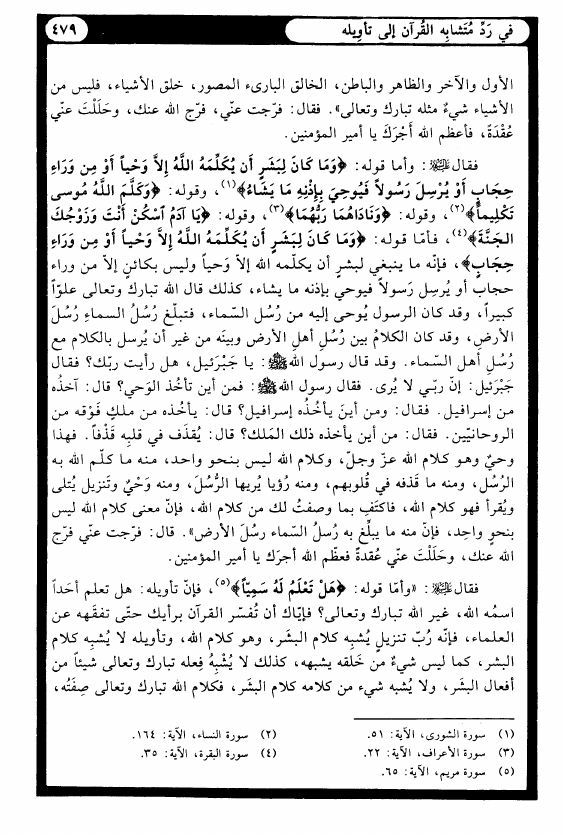 في رَدِّ مُتَشابِه القُرآن إلى تأوِيله
٤٧٩
الأول والآخر والظاهر والباطن، الخالق البارىء المصور، خلق الأشياء، فليس من
الأشياء شيءٌ مثله تبارك وتعالى». فقال: فرّجت عنّي، فرّج الله عنك، وحَلَلْتَ عنّي
عُقْدَةً، فأعظم الله أَجْرَكَ يا أمير المؤمنين.
فقال ﷺ: وأما قوله: ﴿وَمَا كَانَ لِبَشَرٍ أَن يُكَلِّمَهُ اللَّهُ إلاَّ وَحْياً أَوْ مِن وَرَاءِ
حِجَابٍ أَوْ يُرْسِلَ رَسُولاً فَيُوحِيَ بِإِذْنِهِ مَا يَشَاءُ﴾(١)، وقوله: ﴿وَكَلَّمَ اللَّهُ موسى
تَكْلِيماً﴾(٢)، وقوله: ﴿وَنَادَاهُمَا رَبُّهُمَا﴾(٣)، وقوله: ﴿يَا آدَمُ اسْكُنْ أَنْتَ وَزَوْجُكَ
الجَنَّةَ﴾(٤)، فأمّا قوله: ﴿وَمَا كَانَ لِبَشَرٍ أَن يُكَلِّمَهُ اللَّهُ إلاَّ وَحْياً أَوْ مِن وَرَاءِ
حِجَابٍ﴾، فإنّه ما ينبغي لبشرٍ أن يكلّمه الله إلاّ وَحياً وليس بكائنٍ إلاّ من وراء
حجاب أو يُرسِل رَسولاً فيوحي بإذنه ما يشاء، كذلك قال الله تبارك وتعالى علوّاً
كبيراً، وقد كان الرسول يُوحى إليه من رُسُل السّماء، فتبلّغ رُسُلُ السماءِ رُسُلَ
الأرضِ، وقد كان الكلامُ بين رُسُلِ أهلِ الأرض وبينَه من غير أن يُرسل بالكلام مع
رُسُلِ أهل السّماء. وقد قال رسول الله ﷺ: يا جَبْرَئيل، هل رأيت ربّك؟ فقال
جَبْرَئيل: إنّ ربّي لا يُرى. فقال رسول الله ﷺ: فمن أين تأخُذ الوَحي؟ قال: آخذُه
من إسرافيل. فقال: ومن أينَ يأخُذُه إسرافيل؟ قال: يأخذُه من ملكٍ فوْقه من
الروحانيّين. فقال: من أين يأخذه ذلك المَلك؟ قال: يُقذَف في قلبِه قَذْفاً. فهذا
وحيٌ وهو كلام الله عزّ وجلّ، وكلام الله ليس بنحو واحد، منه ما كلّم الله به
الرُسُل، ومنه ما قذفه في قُلوبهم، ومنه رُؤيا يُريها الرُّسُلَ، ومنه وَحْيٌ وتنزيل يُتلى
ويُقرأ فهو كلام الله، فاكتَفِ بما وصفتُ لك من كلام الله، فإنّ معنى كلام الله ليس
بنحوٍ واحِد، فإنّ منه ما يبلِّغ به رسُلُ السّماء رسُلَ الأرض». قال: فرّجت عنّي فرّج
الله عنك، وحَلَلْتَ عنّي عُقدةً فعظّم الله أجرَك يا أمير المؤمنين.
فقال ﷺ: «وأمّا قوله: ﴿هَلْ تَعْلَمُ لَهُ سَمِيّاً﴾(٥)، فإنّ تأويله: هل تعلم أحَداً
اسمُه الله، غير الله تبارك وتعالى؟ فإيّاك أن تُفسّر القرآن برأيك حتّى تفقَهه عن
العلماء، فإنّه رُبّ تنزيلٍ يُشبِه كلام البشَر، وهو كلام الله، وتأويله لا يُشبِه كلام
البشر، كما ليس شيءٌ من خَلقه يشبهه، كذلك لا يُشْبِهُ فِعله تبارك وتعالى شيئاً من
أفعال البشَر، ولا يُشبه شيء من كلامه كلام البشَر، فكلام الله تبارك وتعالى صِفَتُه،
(١) سورة الشورى، الآية: ٥١.
(٢) سورة النساء، الآية: ١٦٤.
(٣) سورة الأعراف، الآية: ٢٢.
(٤) سورة البقرة، الآية: ٣٥.
(٥) سورة مريم، الآية: ٦٥.